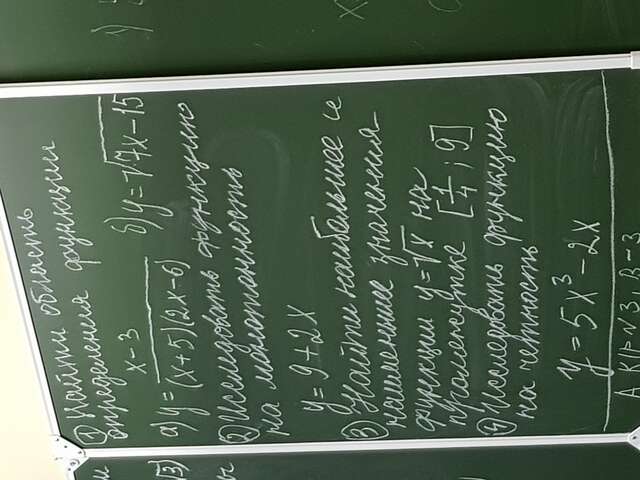 1) Найти область
определения функции
а) y = x-3 / (x+5)(2x-6) б) y = √7x-15
2) Исследовать функцию
на монотонность
y = 9+2x
3) Найти наибольшее и
наименьшее значения
функции y = √x на
промежутке [1/4; 9]
4) Исследовать функцию
на четность
y = 5x³ - 2x